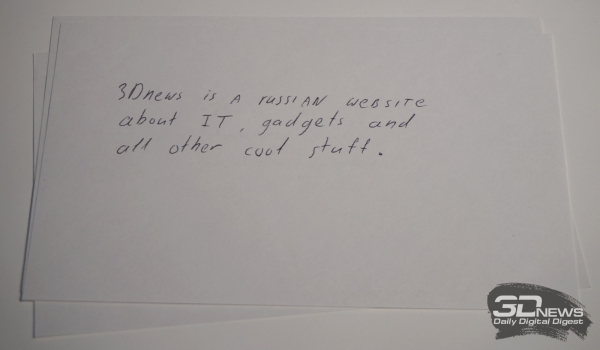 3Dnews is A russiAN website
about IT, gadgets and
all other cool stuff.
3DNEWS
Daily Digital Digest